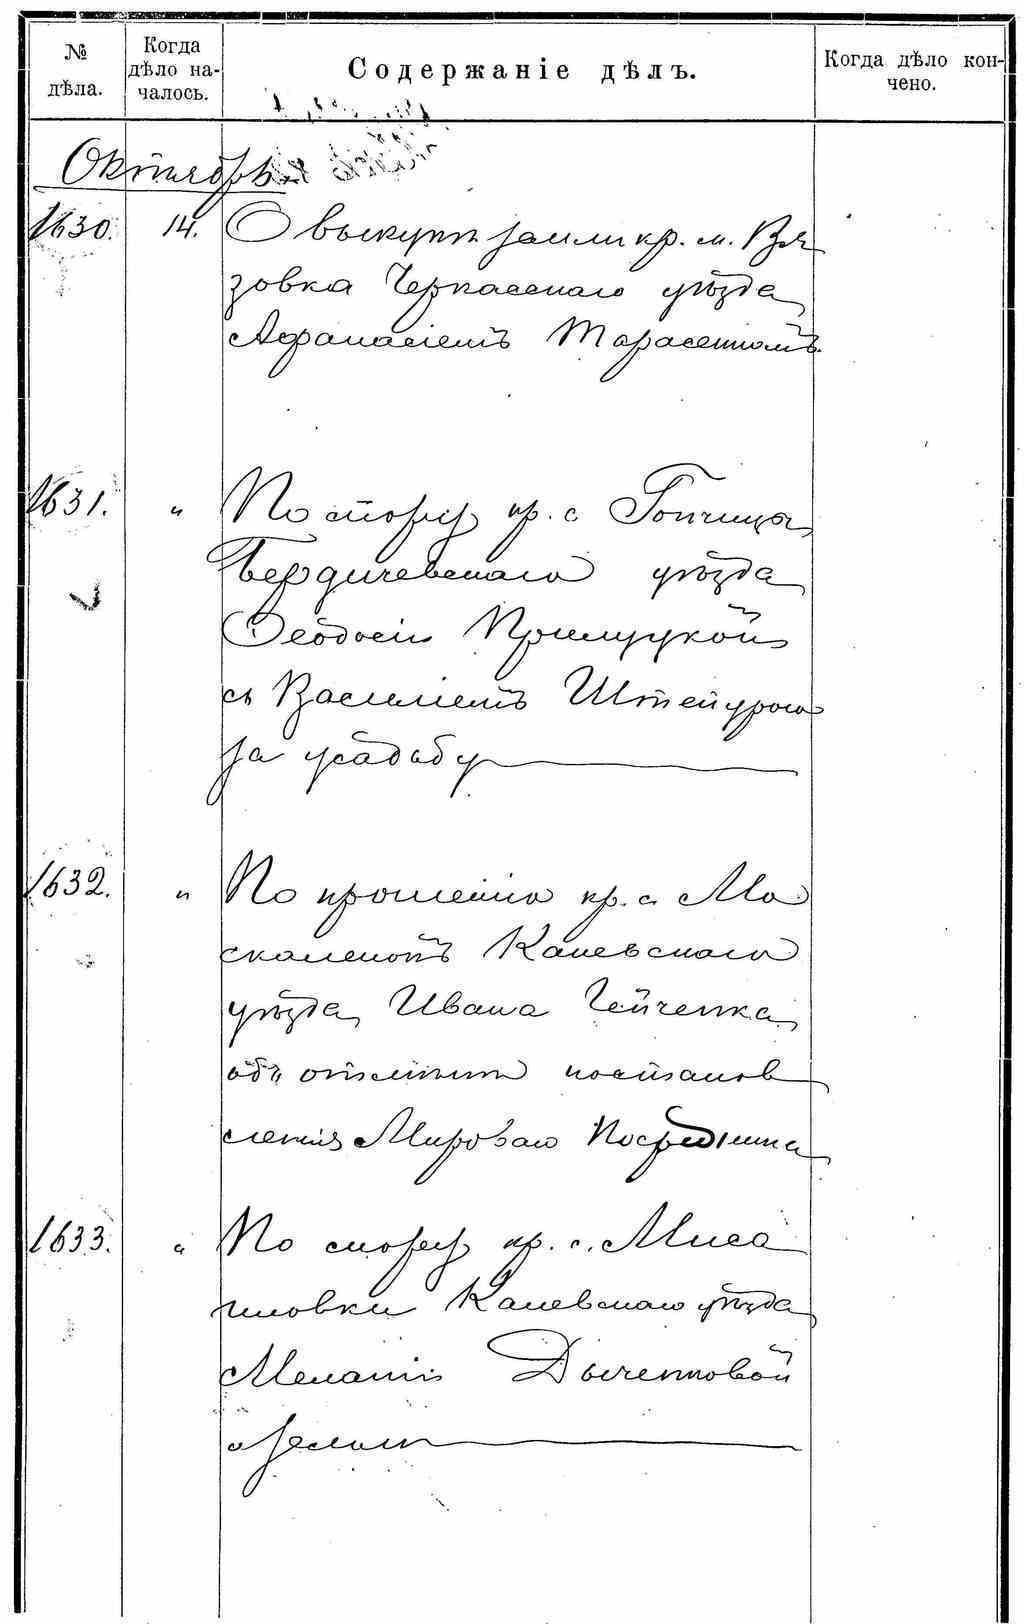 № дѣла.
Когда дѣло на-чалось.
Содержаніе дѣлъ.
Когда дѣло кон-чено.
Октябрь
1630. 14. О выкупѣ земли кр. м. Вя
зовка Черкасскаго уѣзда
Афанасіемъ Тарасенкомъ.
1631. " По спору кр. с. Гопчица
Бердичевскаго уѣзда
Ѳеодосіи Прилуцкой
съ Василіемъ
за усадьбу
1632. " По прошенію кр. с. Мо
скаленокъ Каневскаго
уѣзда, Ивана
объ отмѣнѣ постанов
ленія Мироваго Посредника
1633. " По спору кр. с. Миса
иловки Каневскаго уѣзда
Меланіи
о землѣ